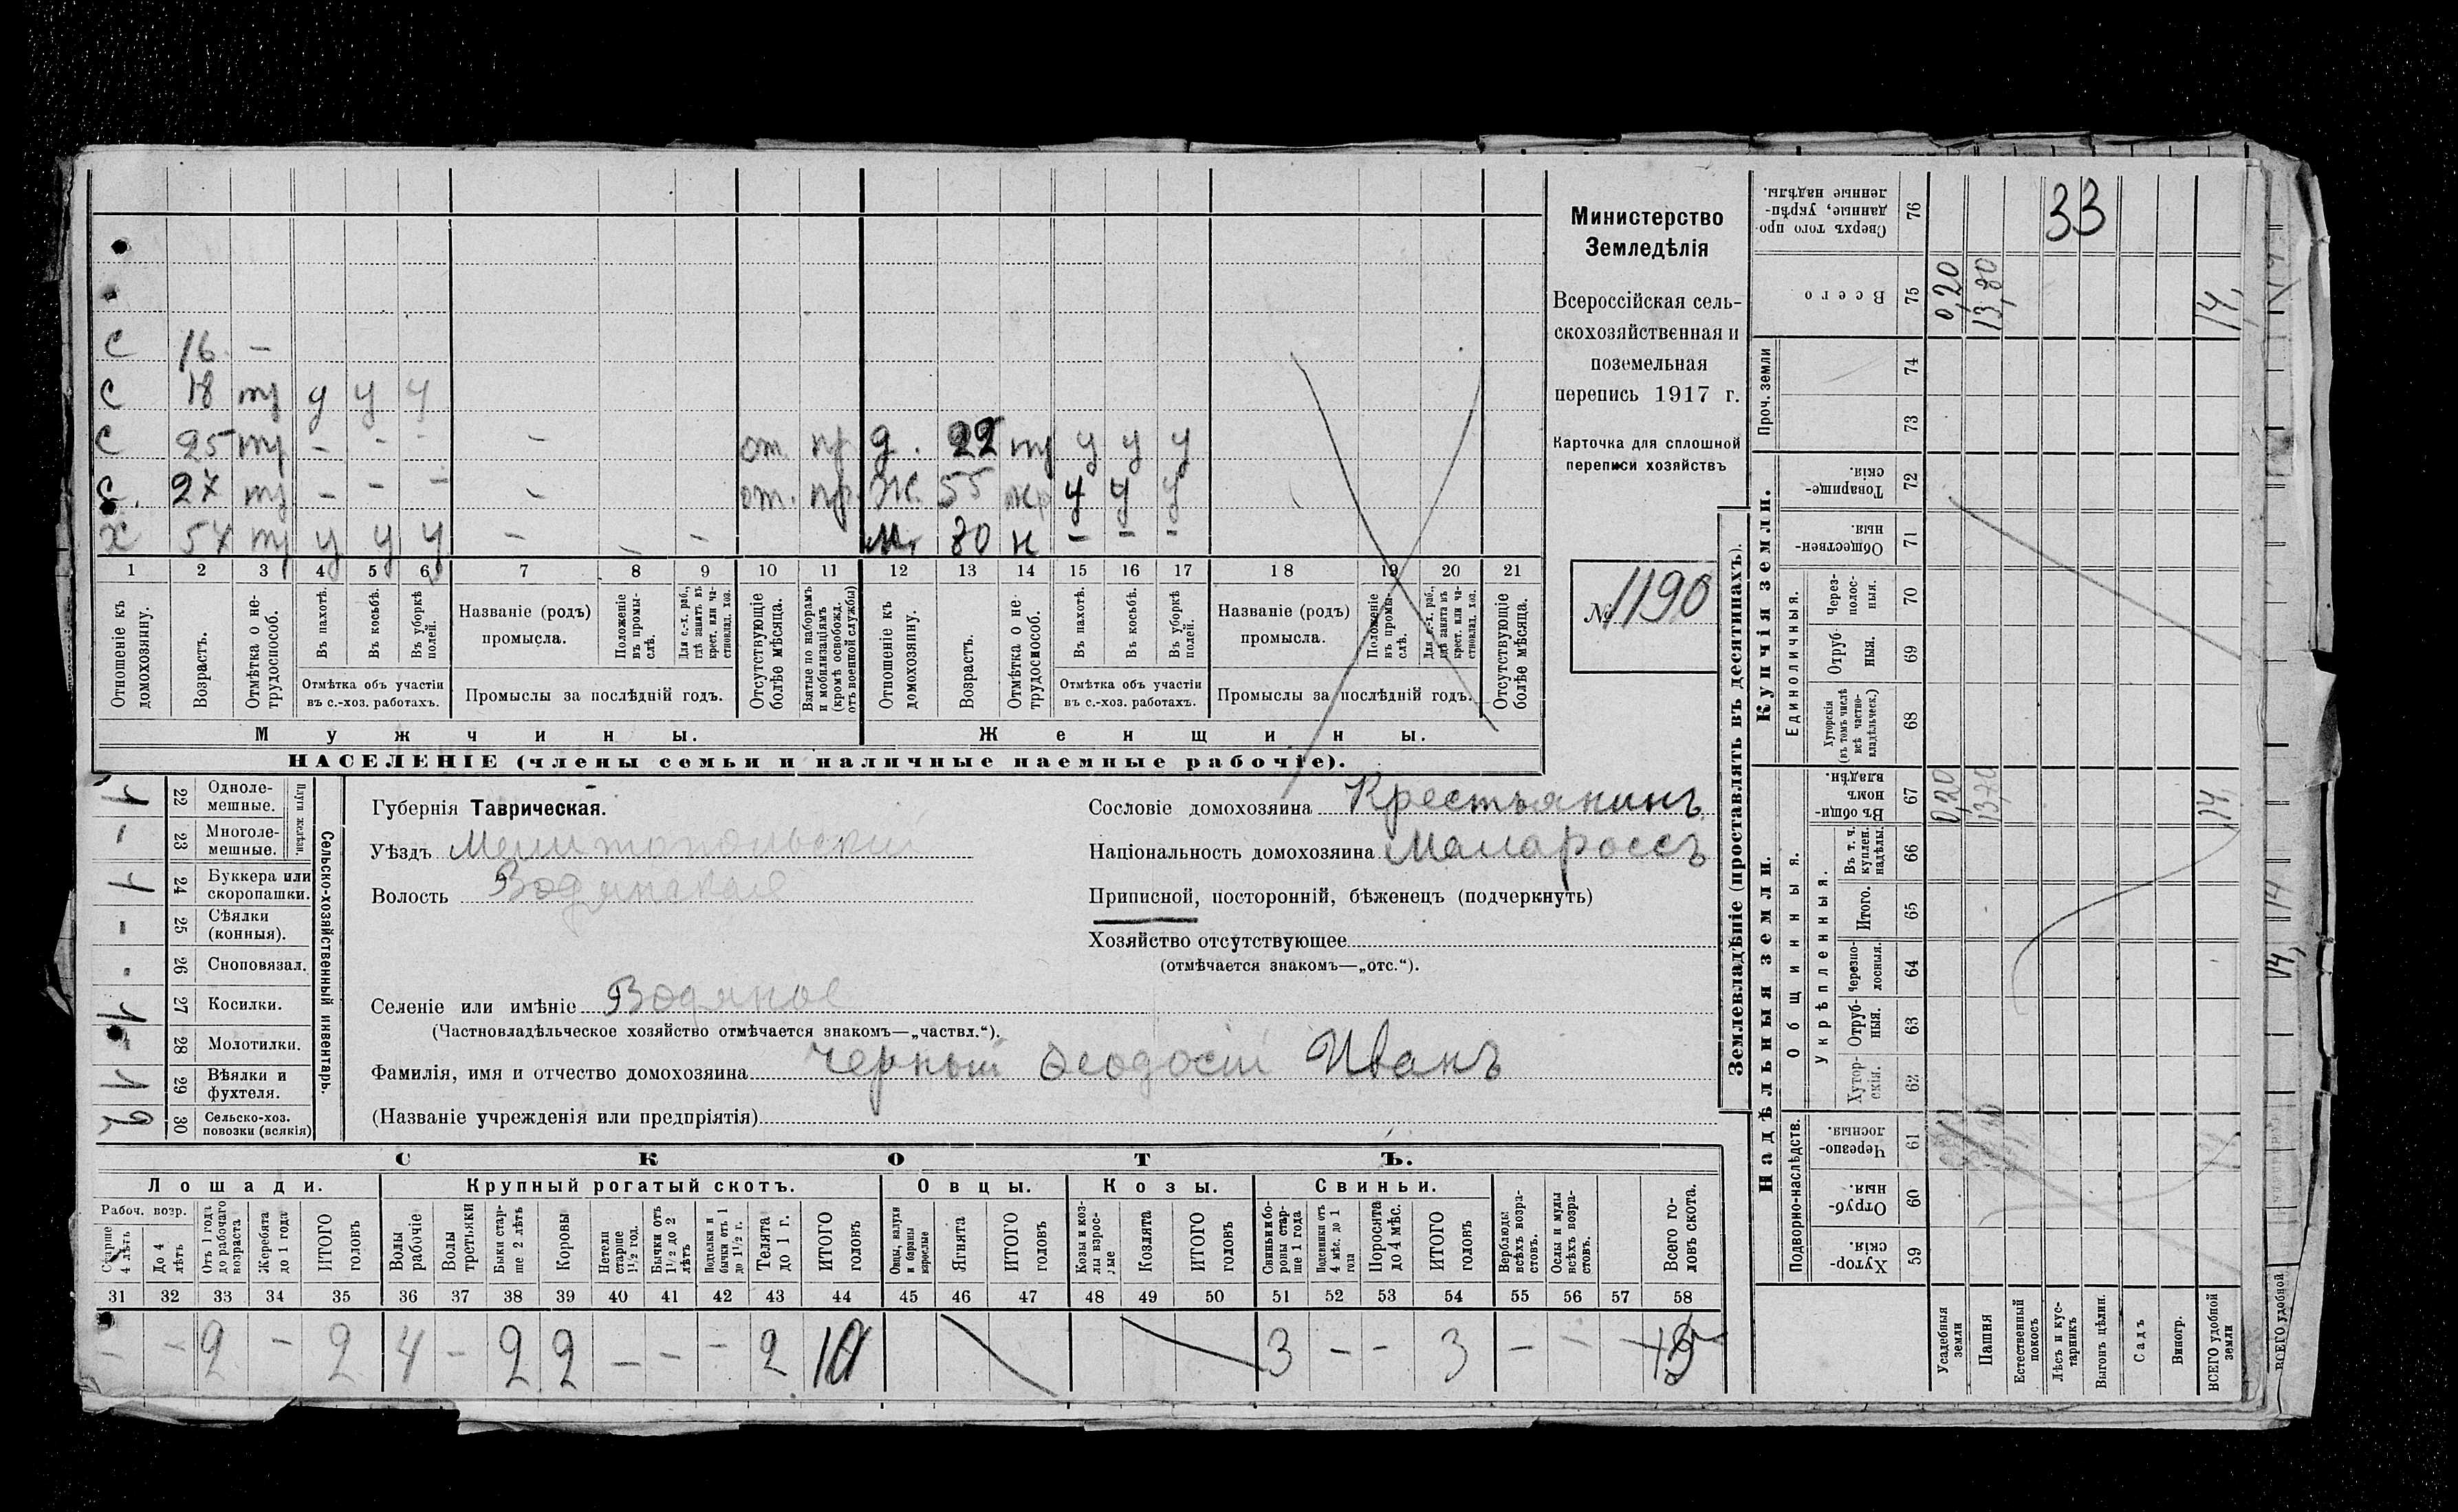 С 16 —
С 18 тр у у у
С 25 тр — — — — от. пр д. 22 тр у у у
С. 27 тр — — — — от. пр. Ж. 55 тр у у у
Х 54 тр у у у — — — м. 80 н — — —
1 2 3 4 5 6 7 8 9 10 11 12 13 14 15 16 17 18 19 20 21
Отношеніе къ домохозяину.
Возрастъ.
Отмѣтка о не-трудоспособ.
Въ пахотѣ.
Въ косьбѣ.
Въ уборкѣ полей.
Отмѣтка объ участіи въ с.-хоз. работахъ.
Названіе (родъ) промысла.
Положеніе въ промы-слѣ.
Для с.-х. раб., гдѣ занятъ въ крест. или ча-стновлад. хоз.
Промыслы за послѣдній годъ.
Отсутствующіе болѣе мѣсяца.
Взятые по наборамъ и мобилизаціямъ (кромѣ освобожд. отъ военной службы)
Отношеніе къ домохозяину.
Возрастъ.
Отмѣтка о не трудоспособ.
Въ пахотѣ.
Въ косьбѣ.
Въ уборкѣ полей.
Отмѣтка объ участіи въ с.-хоз. работахъ.
Названіе (родъ) промысла.
Положеніе въ промы-слѣ.
Для с.-х. раб., гдѣ занята въ крест. или ча-стновлад. хоз.
Промыслы за послѣдній годъ.
Отсутствующіе болѣе мѣсяца.
Мужчины. Женщины.
НАСЕЛЕНІЕ (члены семьи и наличные наемные рабочіе).
Министерство
Земледѣлія
Всероссійская сель-
скохозяйственная и
поземельная
перепись 1917 г.
Карточка для сплошной
переписи хозяйствъ
№ 1190
Сельско-хозяйственный инвентарь.
Плуги желѣзн.
1 22 Одноле-мешные.
— 23 Многоле-мешные.
1 24 Буккера или скоропашки.
— 25 Сѣялки (конныя).
- 26 Сноповязал.
1 27 Косилки.
- 28 Молотилки.
1 29 Вѣялки и фухтеля.
2 30 Сельско-хоз. повозки (всякія)
Губернія Таврическая.
Уѣздъ Мелитопольскій
Волость Водянская
Селеніе или имѣніе Водяное
(Частновладѣльческое хозяйство отмѣчается знакомъ—„частвл.“).
Фамилія, имя и отчество домохозяина Черный Ѳеодосій Иванъ
(Названіе учрежденія или предпріятія)
Сословіе домохозяина Крестьянинъ
Національность домохозяина Малароссъ
Приписной, посторонній, бѣженецъ (подчеркнуть)
Хозяйство отсутствующее
(отмѣчается знакомъ—„отс.“).
СКОТЪ.
Лошади. Крупный рогатый скотъ. Овцы. Козы. Свиньи.
Рабоч. возр.
Старше 4 лѣтъ
До 4 лѣтъ
Отъ 1 года до рабочаго возраста
Жеребята до 1 года
ИТОГО головъ
Волы рабочіе
Волы третьяки
Быки стар-ше 2 лѣтъ
Коровы
Нетели старше 1½ год.
Бычки отъ 1½ до 2 лѣтъ
Подтелки и бычки отъ 1 до 1½ г.
Телята до 1 г.
ИТОГО головъ
Овцы, валухи и бараны взрослые
Ягнята
ИТОГО головъ
Козы и коз-лы взрос-лые
Козлята
ИТОГО головъ
Свиньи и бо-ровы стар-ше 1 года
Подсвинки отъ 4 мѣс. до 1 года
Поросята до 4 мѣс.
ИТОГО головъ
Верблюды всѣхъ возра-стовъ.
Ослы и мулы всѣхъ возра-стовъ.
Всего го-ловъ скота.
31 32 33 34 35 36 37 38 39 40 41 42 43 44 45 46 47 48 49 50 51 52 53 54 55 56 57 58
— — 2 — 2 4 — 2 2 — — — 2 10 3 — — 3 — — 15
Землевладѣніе (проставлять въ десятинахъ).
Надѣльныя земли. Купчія земли. Проч. земли
Подворно-наслѣдств. Общинныя. Единоличныя.
Укрѣпленныя.
Хутор-скія. 59
Отруб-ныя. 60
Черезпо-лосныя. 61
Хутор-скія. 62
Отруб-ныя. 63
Черезпо-лосныя. 64
Итого. 65
Въ т. ч. куплен. надѣлы. 66
Въ общи-номъ владѣн. 67
Хуторскія (въ томъ числѣ всѣ частно-владѣльческ.) 68
Отруб-ныя. 69
Через-полос-ныя. 70
Обществен-ныя. 71
Товарище-скія. 72
73 74
Всего 75
Сверхъ того про-данные, укрѣп-ленные надѣлы. 76
33
Усадебныя земли 0,20 0,20
Пашня 13,80
Естественный покосъ
Лѣсъ и кус-тарникъ
Выгонъ цѣлин.
Садъ
Виногр.
ВСЕГО удобной земли 14, 14,
ВСЕГО удобной
14,